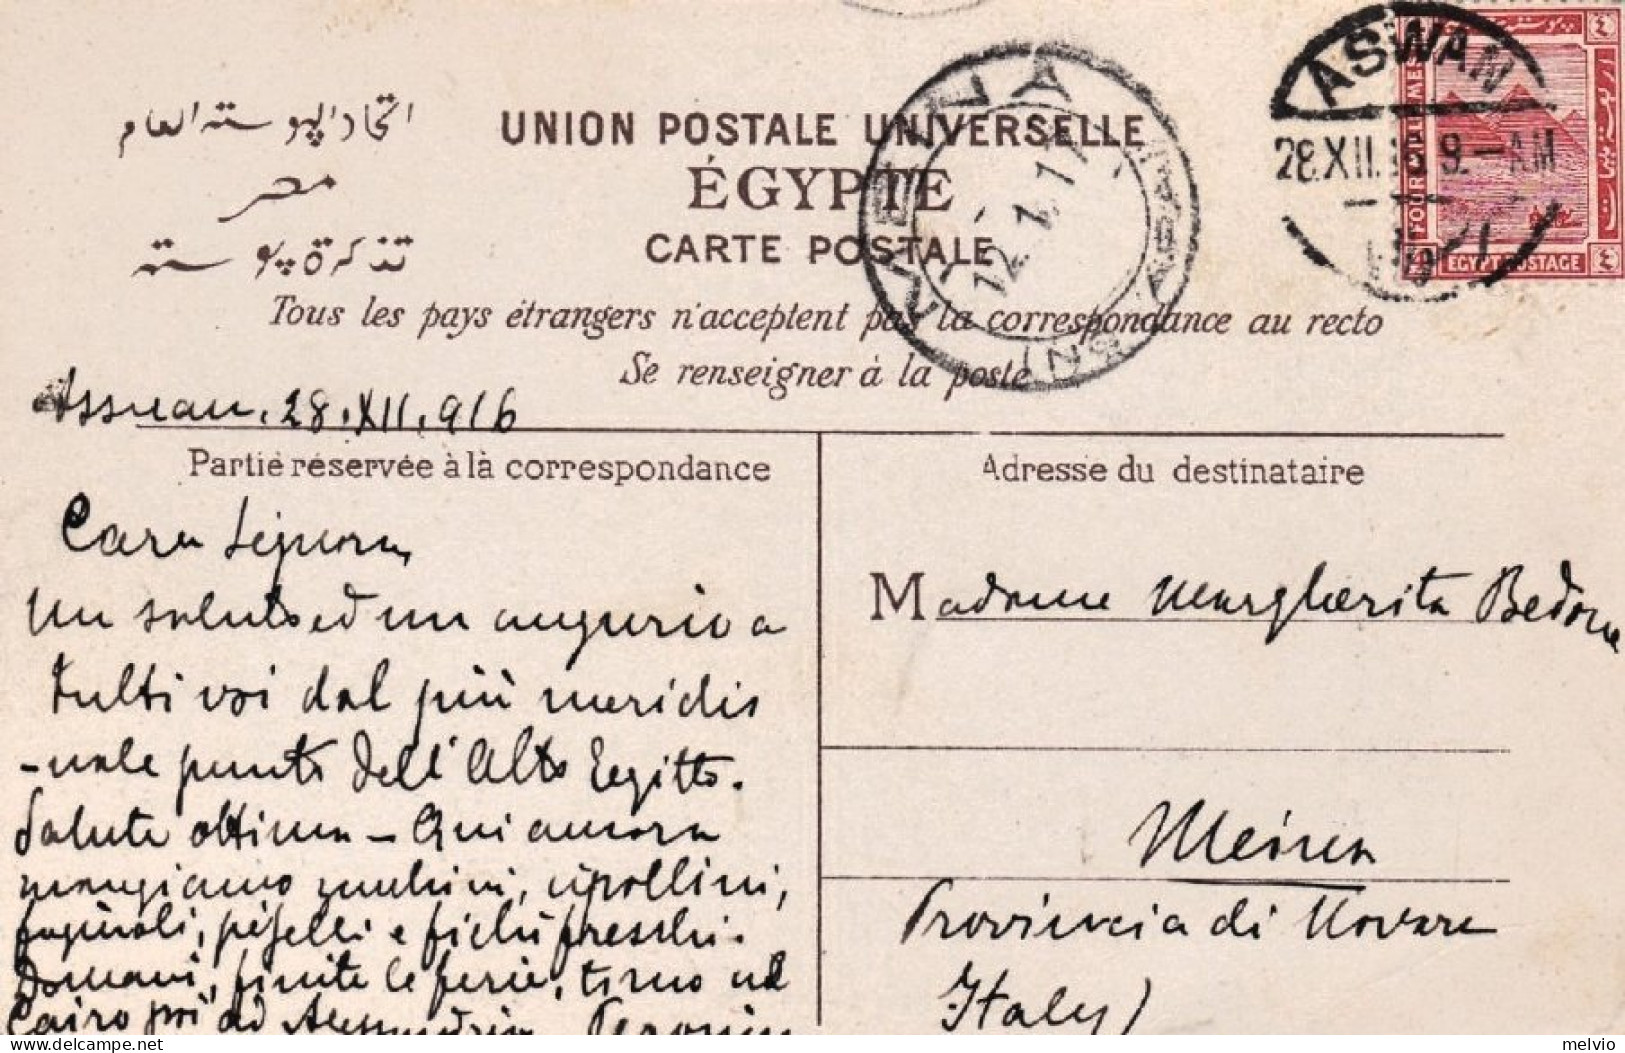 اتحاد البوسته العام
مصر
تذكرة بوسته
UNION POSTALE UNIVERSELLE
ÉGYPTE
CARTE POSTALE
Tous les pays étrangers n'acceptent pas la correspondance au recto
Se renseigner à la poste
ASWAN
28.XII.16 9.-AM
FOUR MILLIEMES
EGYPT POSTAGE
12.1.17
Assuan. 28.XII.916
Partie réservée à la correspondance
Adresse du destinataire
Cara Signora,
Un saluto ed un augurio a
tutti voi dal più meridio
-nale punto dell'Alto Egitto.
Salute ottima – Qui ancora
mangiamo zucchini, cipollini,
fagiuoli, piselli e fichi freschi.
Domani, finite le ferie, torno al
Cairo poi ad Alessandria
Madame Margherita Bedone
Meina
Provincia di Novara
Italy)
melvio